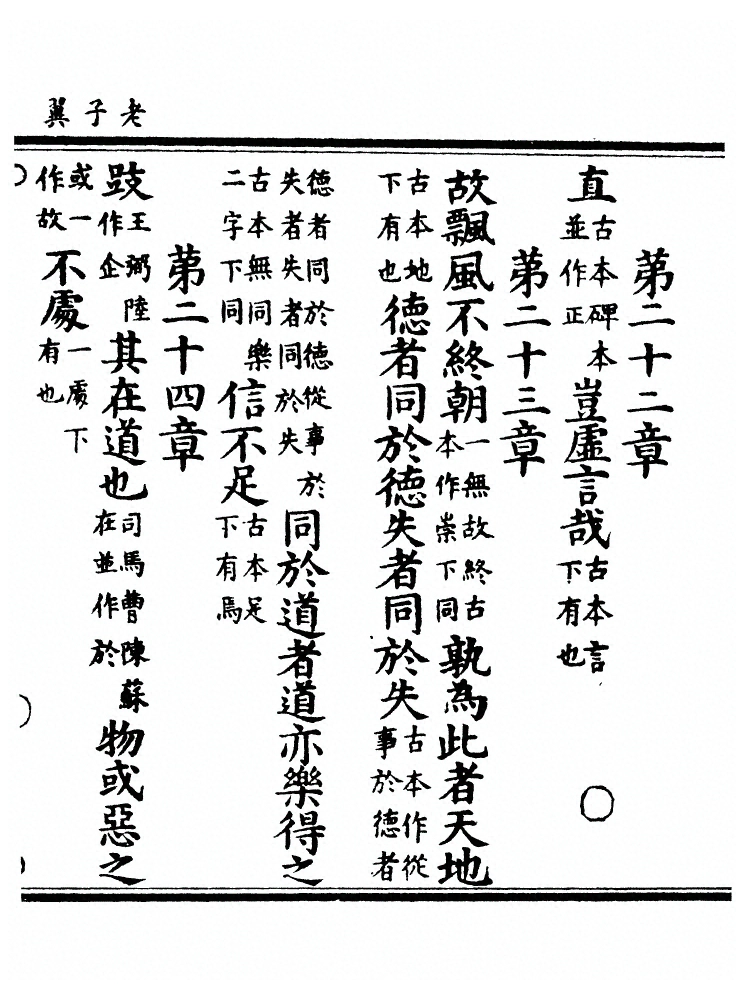 老子翼
第二十二章
直古本碑本並作正豈虛言哉古本言下有也○
第二十三章
故飄風不終朝一無故終古本作崇下同孰為此者天地
古本地下有也德者同於德失者同於失古本作從事於德者
德者同於德從事於失者失者同於失同於道者道亦樂得之
古本無同樂二字下同信不足古本足下有焉
第二十四章
跂王弼陸作企其在道也司馬曹陳蘇在並作於物或惡之
或一作故不處一處下有也